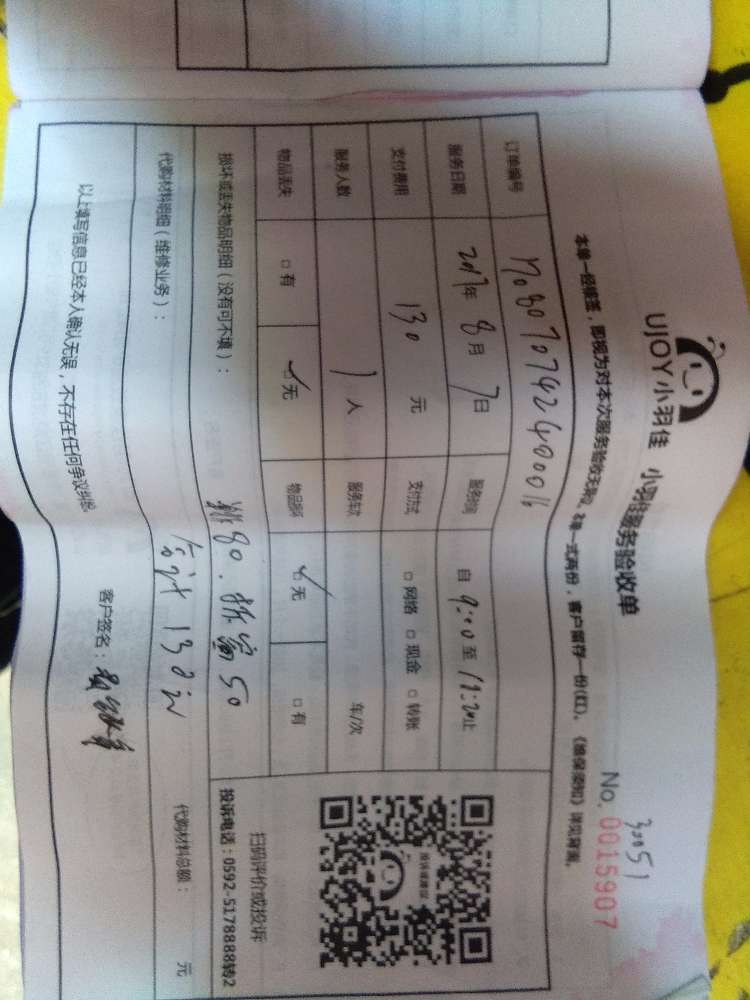 UJOY小羽佳 小羽佳服务验收单
No. 0015907
30051
本单一经撕签，即视为对本次服务验收无异议，本单一式两份，客户留存一份(红)。《维保须知》详见背面。
订单编号
服务日期 2017年 8月 7日 服务时间 自 9:00 至 11:20止
支付费用 130 元 支付方式 □ 网络 □ 现金 □ 转账
服务人数 1 人 服务车次 车/次
物品丢失 □ 有 ☑ 无 物品损坏 ☑ 无 □ 有
损坏或丢失物品明细（没有可不填）：
80. 拆窗 50
代购材料明细（维修业务）：
合计 130元
代购材料总额： 元
以上填写信息已经本人确认无误，不存在任何争议纠纷。
客户签名：
投诉或建议
扫码评价或投诉
投诉电话：0592-5178888转2